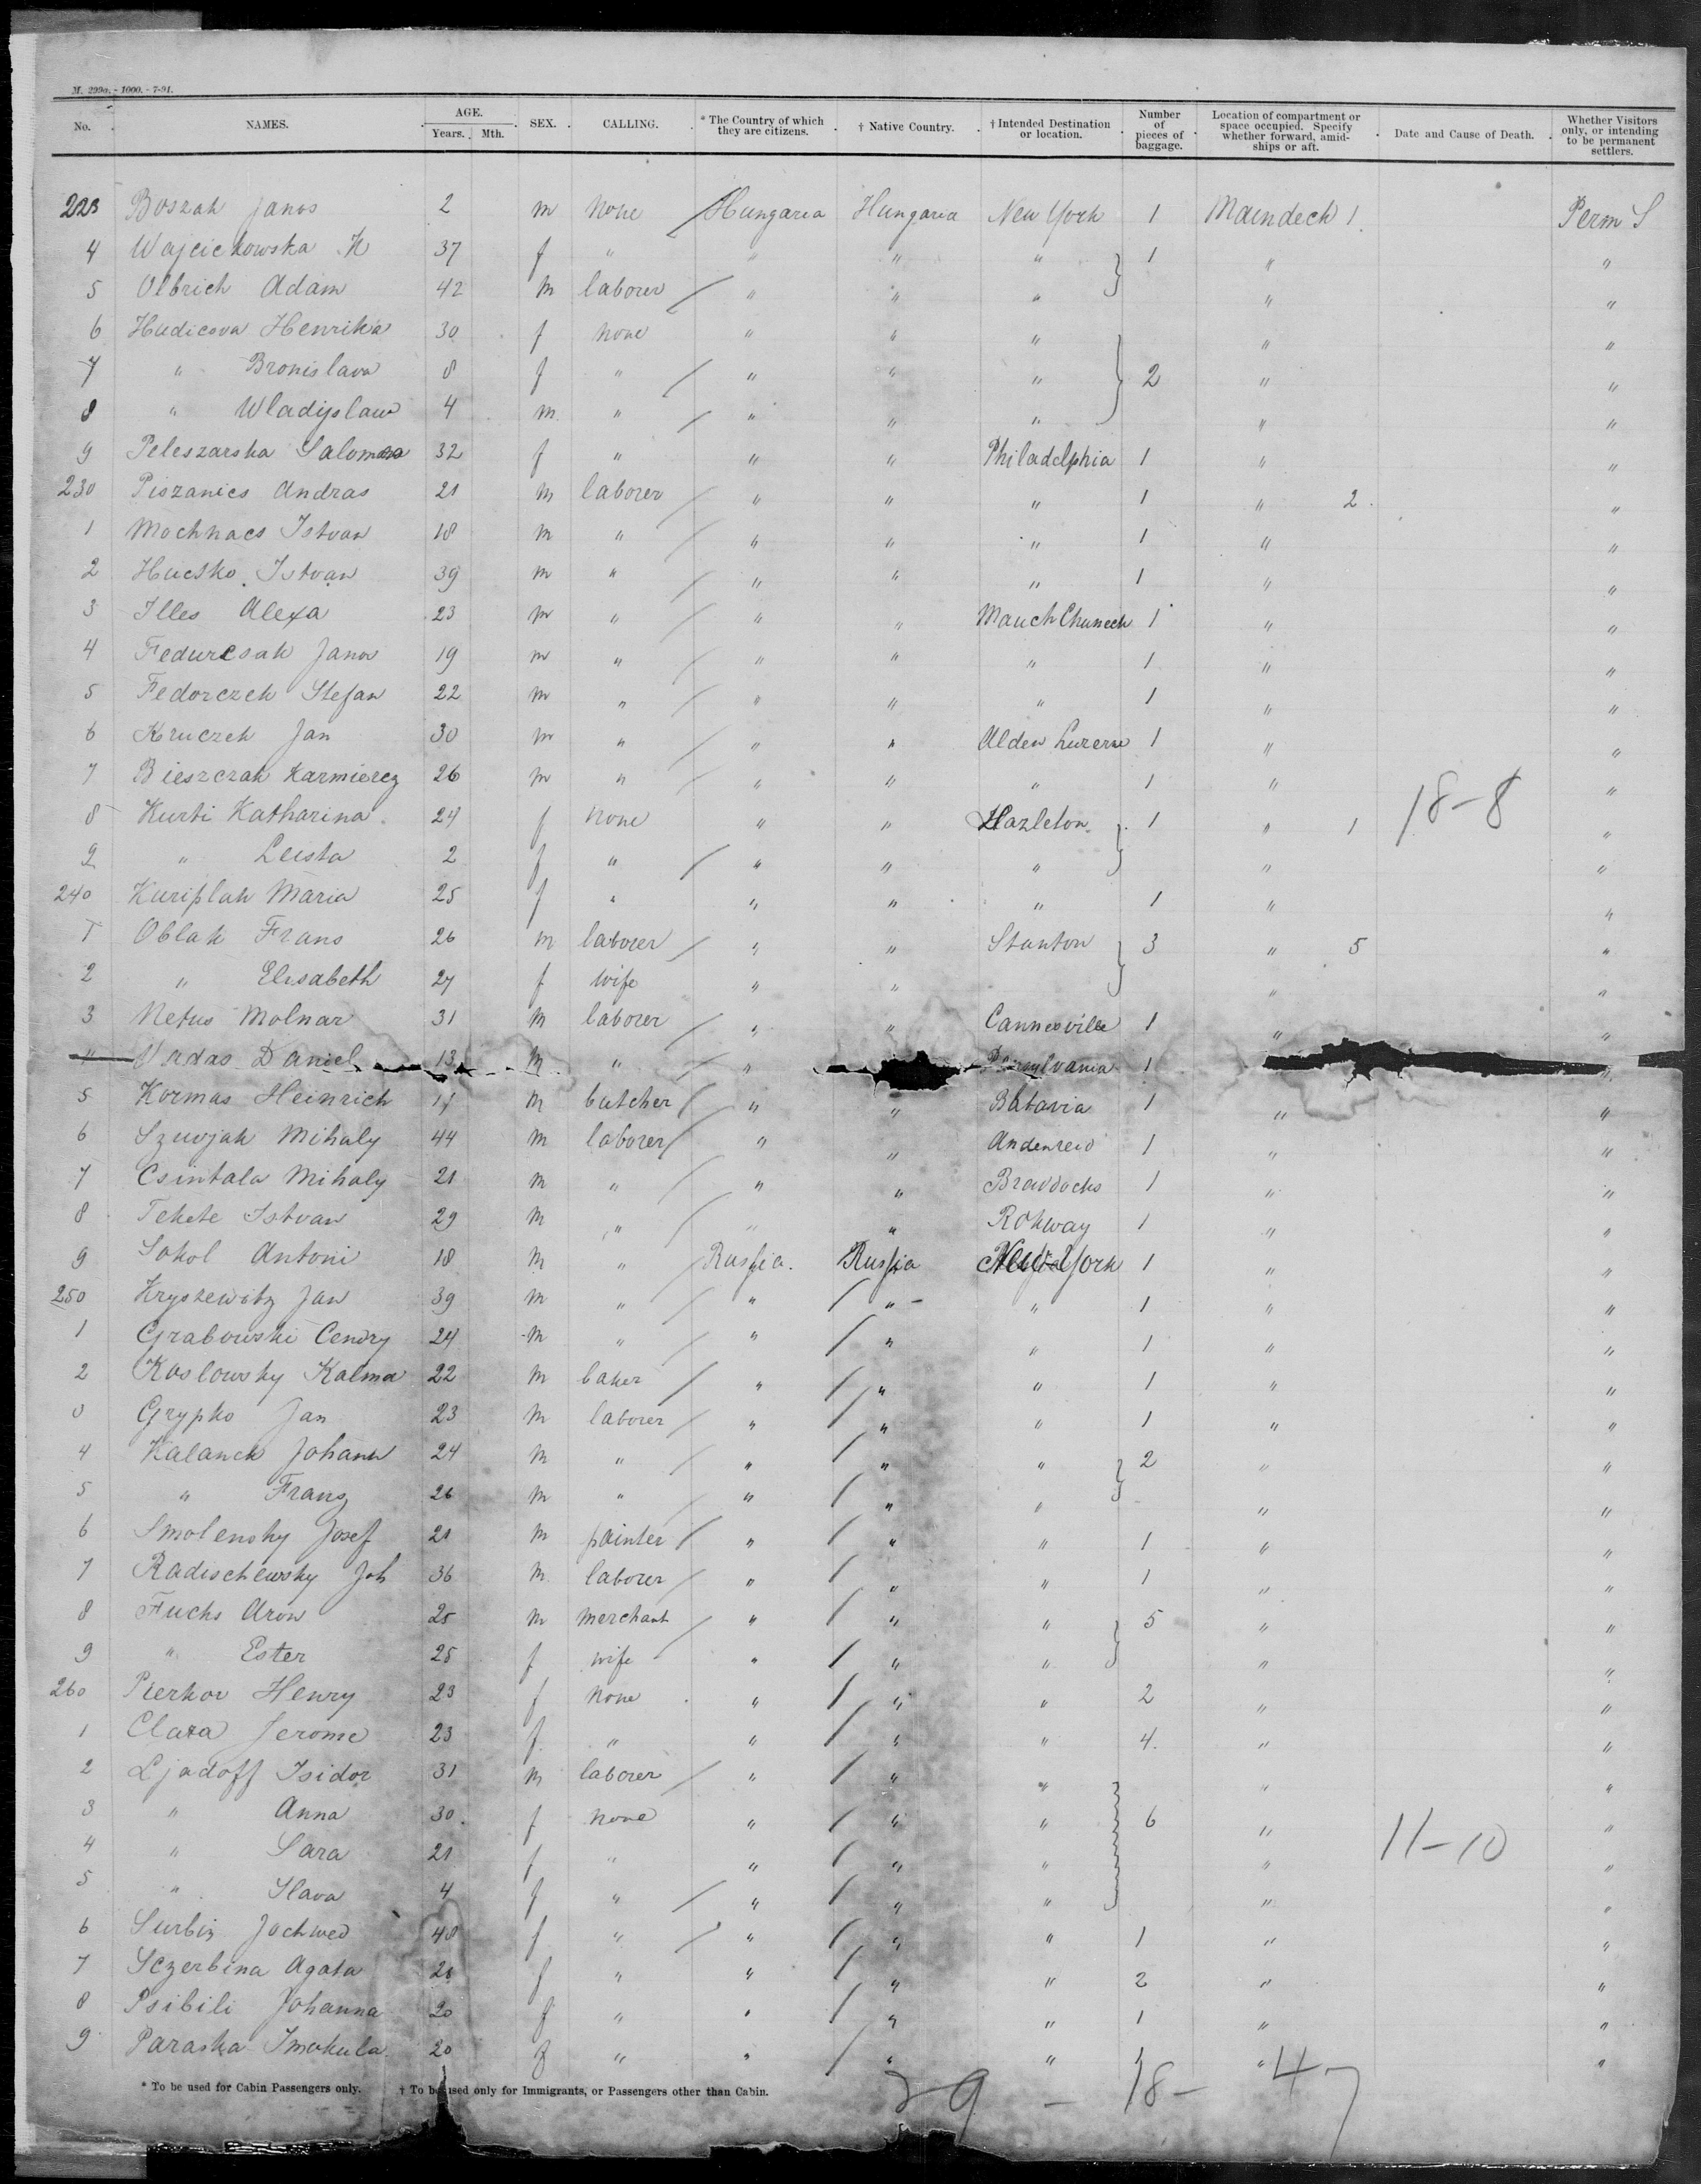 M. 299a. - 1000. - 7-91.
No. NAMES. AGE. Years. Mth. SEX. CALLING. * The Country of which they are citizens. † Native Country. † Intended Destination or location. Number of pieces of baggage. Location of compartment or space occupied. Specify whether forward, amidships or aft. Date and Cause of Death. Whether Visitors only, or intending to be permanent settlers.
223 Boszah Janos 2 m none Hungaria Hungaria New York 1 Maindeck 1. Perm S
4 Wajcickowska K 37 f " " " " 1 " "
5 Olbrich Adam 42 m laborer " " " " "
6 Hudicova Henrika 30 f none " " " " "
7 " Bronislava 8 f " " " " 2 " "
8 " Wladyslaw 4 m " " " " " "
9 Peleszarska 32 f " " " Philadelphia 1 " "
230 Piszanics Andras 21 m laborer " " " 1 " 2. "
1 Mochnacs Istvan 18 m " " " " 1 " "
2 Hucsko Istvan 39 m " " " " 1 " "
3 Illes Alexa 23 m " " " Mauch Chunech 1 " "
4 Fedurcsak Janos 19 m " " " " 1 " "
5 Fedorczek Stefan 22 m " " " " 1 " "
6 Kruczek Jan 30 m " " " Alden Luzerne 1 " "
7 Bieszczak Karmierez 26 m " " " " 1 " "
8 Kurti Katharina 24 f none " " Hazleton 1 " 1 18-8 "
9 " Leista 2 f " " " " " "
240 Kuriplah Maria 25 f " " " " 1 " "
1 Oblak Frans 26 m laborer " " Stanton 3 " 5 "
2 " Elisabeth 27 f wife " " " "
3 Netus Molnar 31 m laborer " " Cannesville 1 " "
Vadas Daniel 13 m " " Pensylvania 1 "
5 Kormas Heinrich 17 m butcher " " Batavia 1 " "
6 Szuvjak Mihaly 44 m laborer " " Andenreid 1 " "
7 Csintala Mihaly 21 m " " " Bravdocks 1 " "
8 Tekete Istvan 29 m " " " Rohway 1 " "
9 Sokol Antoni 18 m " Russia. Russia New York 1 " "
250 Kryszewitz Jan 39 m " " " " 1 " "
1 Grabowski Cendry 24 m " " " " 1 " "
2 Koslowsky Kalma 22 m baker " " " 1 " "
3 Grypko Jan 23 m laborer " " " 1 " "
4 Kalanek Johann 24 m " " " " 2 " "
5 " Franz 26 m " " " " " "
6 Smolensky Josef 21 m painter " " " 1 " "
7 Radischewsky Joh 36 m laborer " " " 1 " "
8 Fuchs Aron 25 m merchant " " " 5 " "
9 " Ester 25 f wife " " " " "
260 Pierkov Henry 23 f none " " " 2 " "
1 Clara Jerome 23 f " " " " 4. " "
2 Ljadoff Isidor 31 m laborer " " " " "
3 " Anna 30. f none " " " 6 " "
4 " Sara 21 f " " " " " 11-10 "
5 " Slava 4 f " " " " " "
6 Surbiz Jochwed 40 f " " " " 1 " "
7 Sczerbina Agata 28 f " " " " 2 " "
8 Psibili Johanna 20 f " " " " 1 " "
9 Paraska Imokula 20 f " " " " 1 " "
* To be used for Cabin Passengers only. † To be used only for Immigrants, or Passengers other than Cabin.
29 - 18 - 47